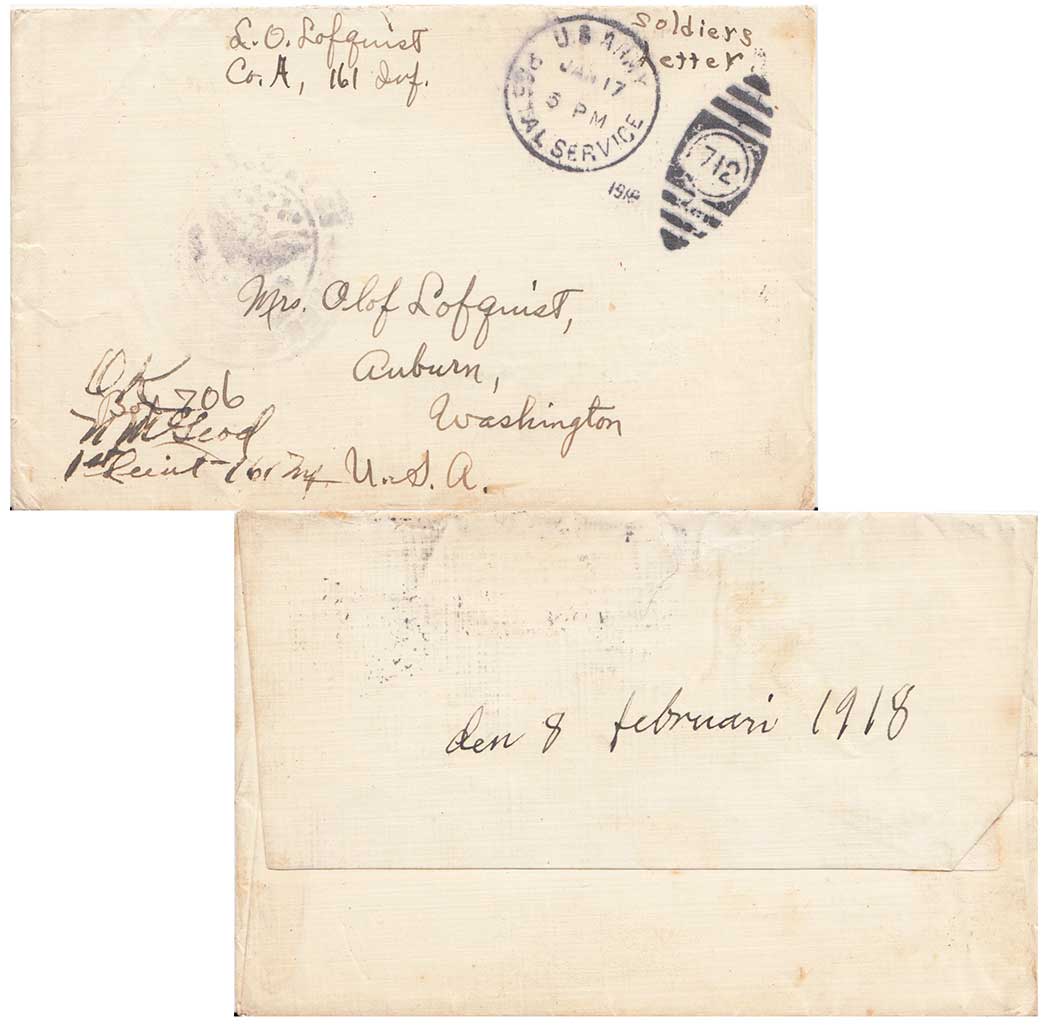 L. O. Lofquist
Co. A, 161 Inf.
Soldiers
Letter.
U.S. ARMY
POSTAL SERVICE
JAN 17
5 PM
1918
712
Mrs. Olof Lofquist,
Auburn,
Washington
U. S. A.
OK
Box 706
N McLeod
1st Lieut - 161 Inf
den 8 februari 1918